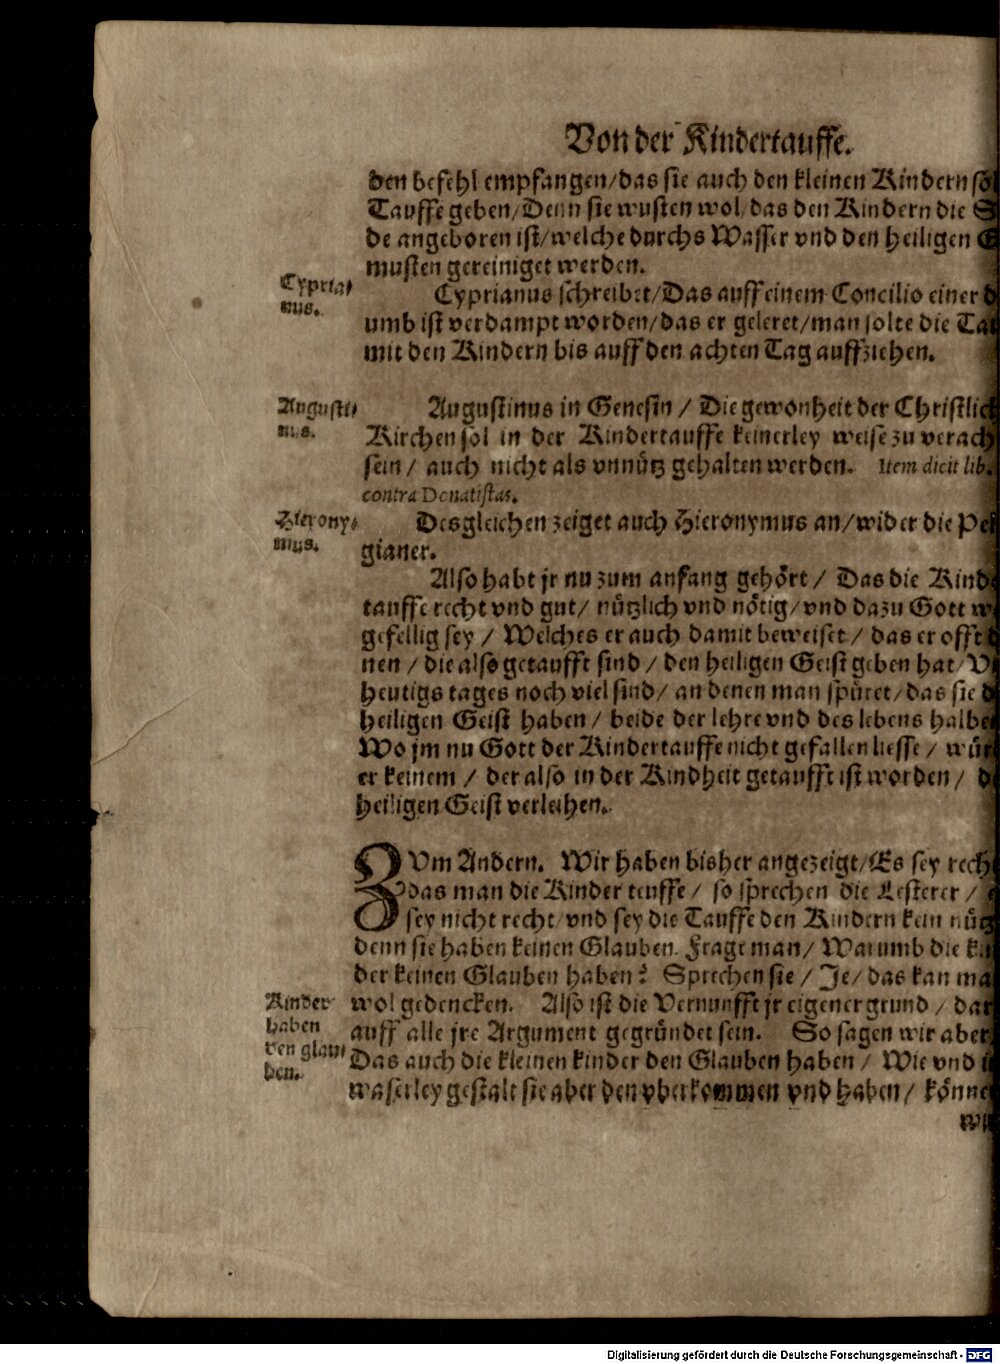 Von der Kindertauffe.
den befehl empfangen/das sie auch den kleinen Kindern
Tauffe geben/Denn sie wusten wol/das den Kindern die
de angeboren ist/welche durchs Wasser vnd den heiligen
musten gereiniget werden.
Cypria⸗
nus.
Cyprianus schreibet/Das auff einem Concilio einer
umb ist verdampt worden/das er geleret/man solte die
mit den Kindern bis auff den achten Tag auffziehen.
Augusti⸗
nus.
Augustinus in Genesin / Die gewonheit der
Kirchen sol in der Kindertauffe keinerley weise zu
sein / auch nicht als vnnütz gehalten werden. Item dicit lib.
contra Donatistas.
Hierony⸗
mus.
Desgleichen zeiget auch Hieronymus an/wider die
gianer.
Also habt jr nu zum anfang gehört / Das die
tauffe recht vnd gut/ nützlich vnd nötig/vnd dazu Gott
gefellig sey / Welches er auch damit beweiset / das er offt
nen / die also getaufft sind / den heiligen Geist geben hat/
heutigs tages noch viel sind/ an denen man spüret/das sie
heiligen Geist haben / beide der lehre vnd des lebens
Wo jm nu Gott der Kindertauffe nicht gefallen liesse /
er keinem / der also in der Kindheit getaufft ist worden /
heiligen Geist verleihen.
ZVm Andern. Wir haben bisher angezeigt/Es sey
das man die Kinder teuffe / so sprechen die Lesterer /
sey nicht recht/vnd sey die Tauffe den Kindern kein
denn sie haben keinen Glauben. Fragt man/ Warumb die
der keinen Glauben haben? Sprechen sie / Je/ das kan
Kinder
haben
den glau⸗
ben.
wol gedencken. Also ist die Vernunfft jr eigener grund /
auff alle jre Argument gegründet sein. So sagen wir aber
Das auch die kleinen kinder den Glauben haben / Wie vnd
waserley gestalt sie aber den vberkommen vnd haben/
Digitalisierung gefördert durch die Deutsche Forschungsgemeinschaft - DFG